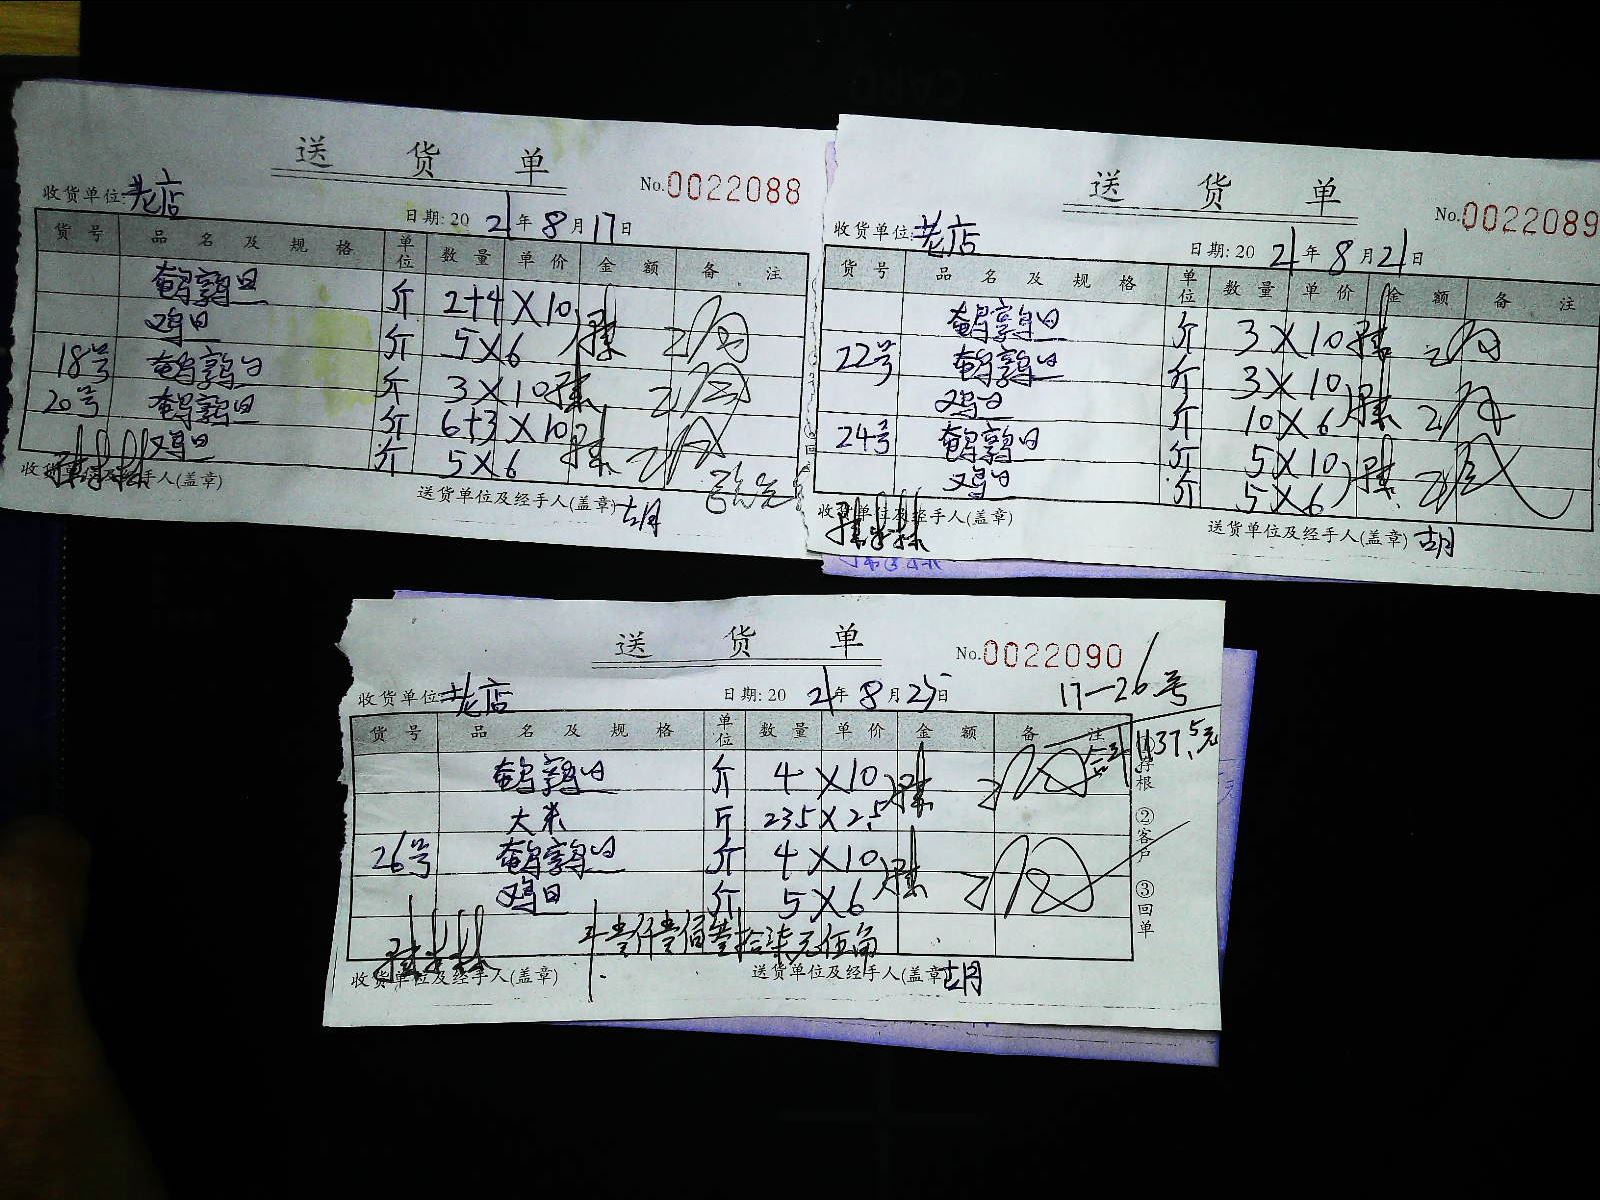 送货单
No.0022088
收货单位:老店
日期:2021年8月17日
货号 品名及规格 单位 数量 单价 金额 备注
鹌鹑旦 斤 2+4×10
鸡旦 斤 5×6
18号 鹌鹑旦 斤 3×10
20号 鹌鹑旦 斤 6+3×10
鸡旦 斤 5×6
收货单位及经手人(盖章)
送货单位及经手人(盖章) 胡
送货单
No.0022089
收货单位:老店
日期:2021年8月21日
货号 品名及规格 单位 数量 单价 金额 备注
鹌鹑旦 斤 3×10
22号 鹌鹑旦 斤 3×10
鸡旦 斤 10×6
24号 鹌鹑旦 斤 5×10
鸡旦 斤 5×6
收货单位及经手人(盖章)
送货单位及经手人(盖章) 胡
送货单
No.0022090
收货单位:老店
日期:2021年8月25日
17—26号
货号 品名及规格 单位 数量 单价 金额 备注
合计1137.5元
鹌鹑旦 斤 4×10
大米 斤 235×2.5
26号 鹌鹑旦 斤 4×10
鸡旦 斤 5×6
壹仟壹佰叁拾柒元伍角
收货单位及经手人(盖章)
送货单位及经手人(盖章) 胡
存根
②客户
③回单